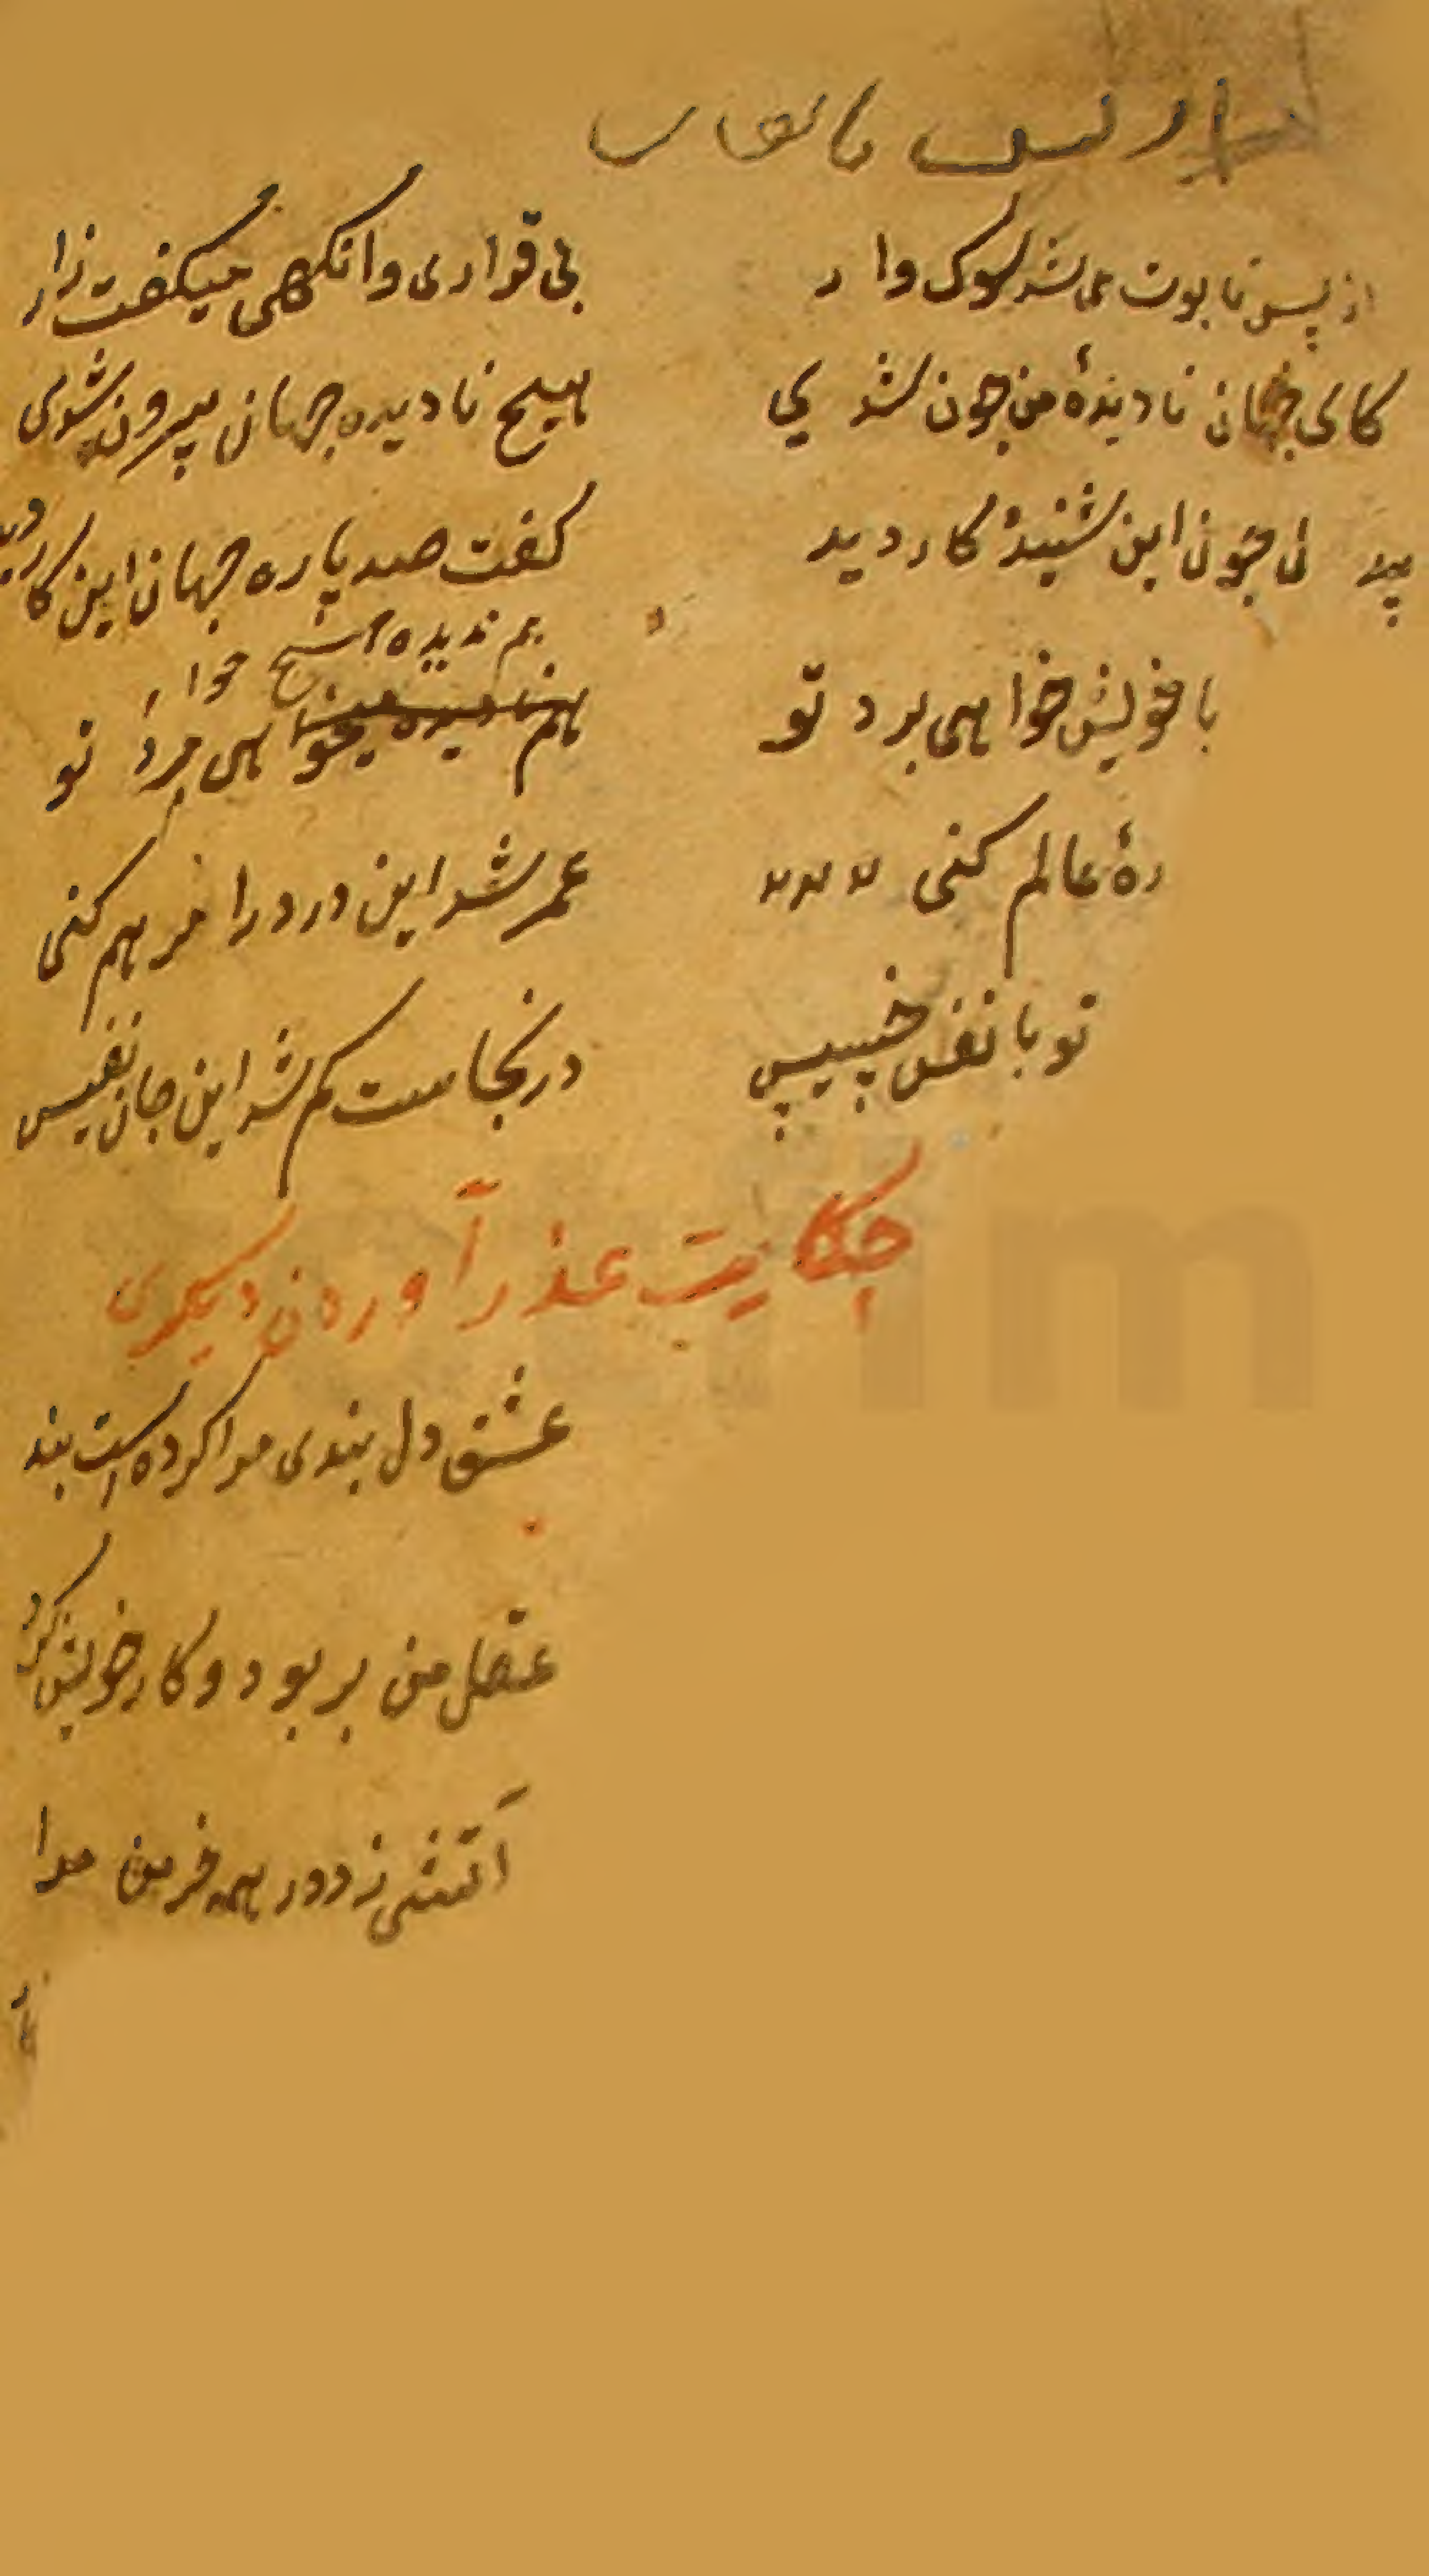 از پس تابوت می شد سوک وار بی قراری وانکهی میکفت زار
کای جهان نادیدهٔ من چون شدی هیچ نادیده جهان بیرون شوی
چون این شنید و کار دید کفت صد باره جهان این کار دید
هم ندیده هیچ خوا
با خویش خواهی برد تو هم نادیده خواهی مرد تو
رهٔ عالم کنی عمر شد این درد را مرهم کنی
تو با نفس خسیس در نجاست کم شد این جان نفیس
حکایت عذر آوردن دیکری
عشق دل بندی مرا کرده است بند
عقل من بربود و کار خویش کرد
آتشی زد در همه خرمن مرا